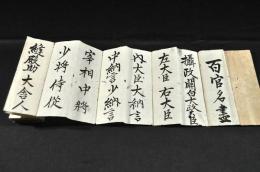 百官名盡
攝政関白太政大臣
左大臣 右大臣
内大臣 大納言
中納言 少納言
宰相中將
少將侍從
縫殿助 大舎人